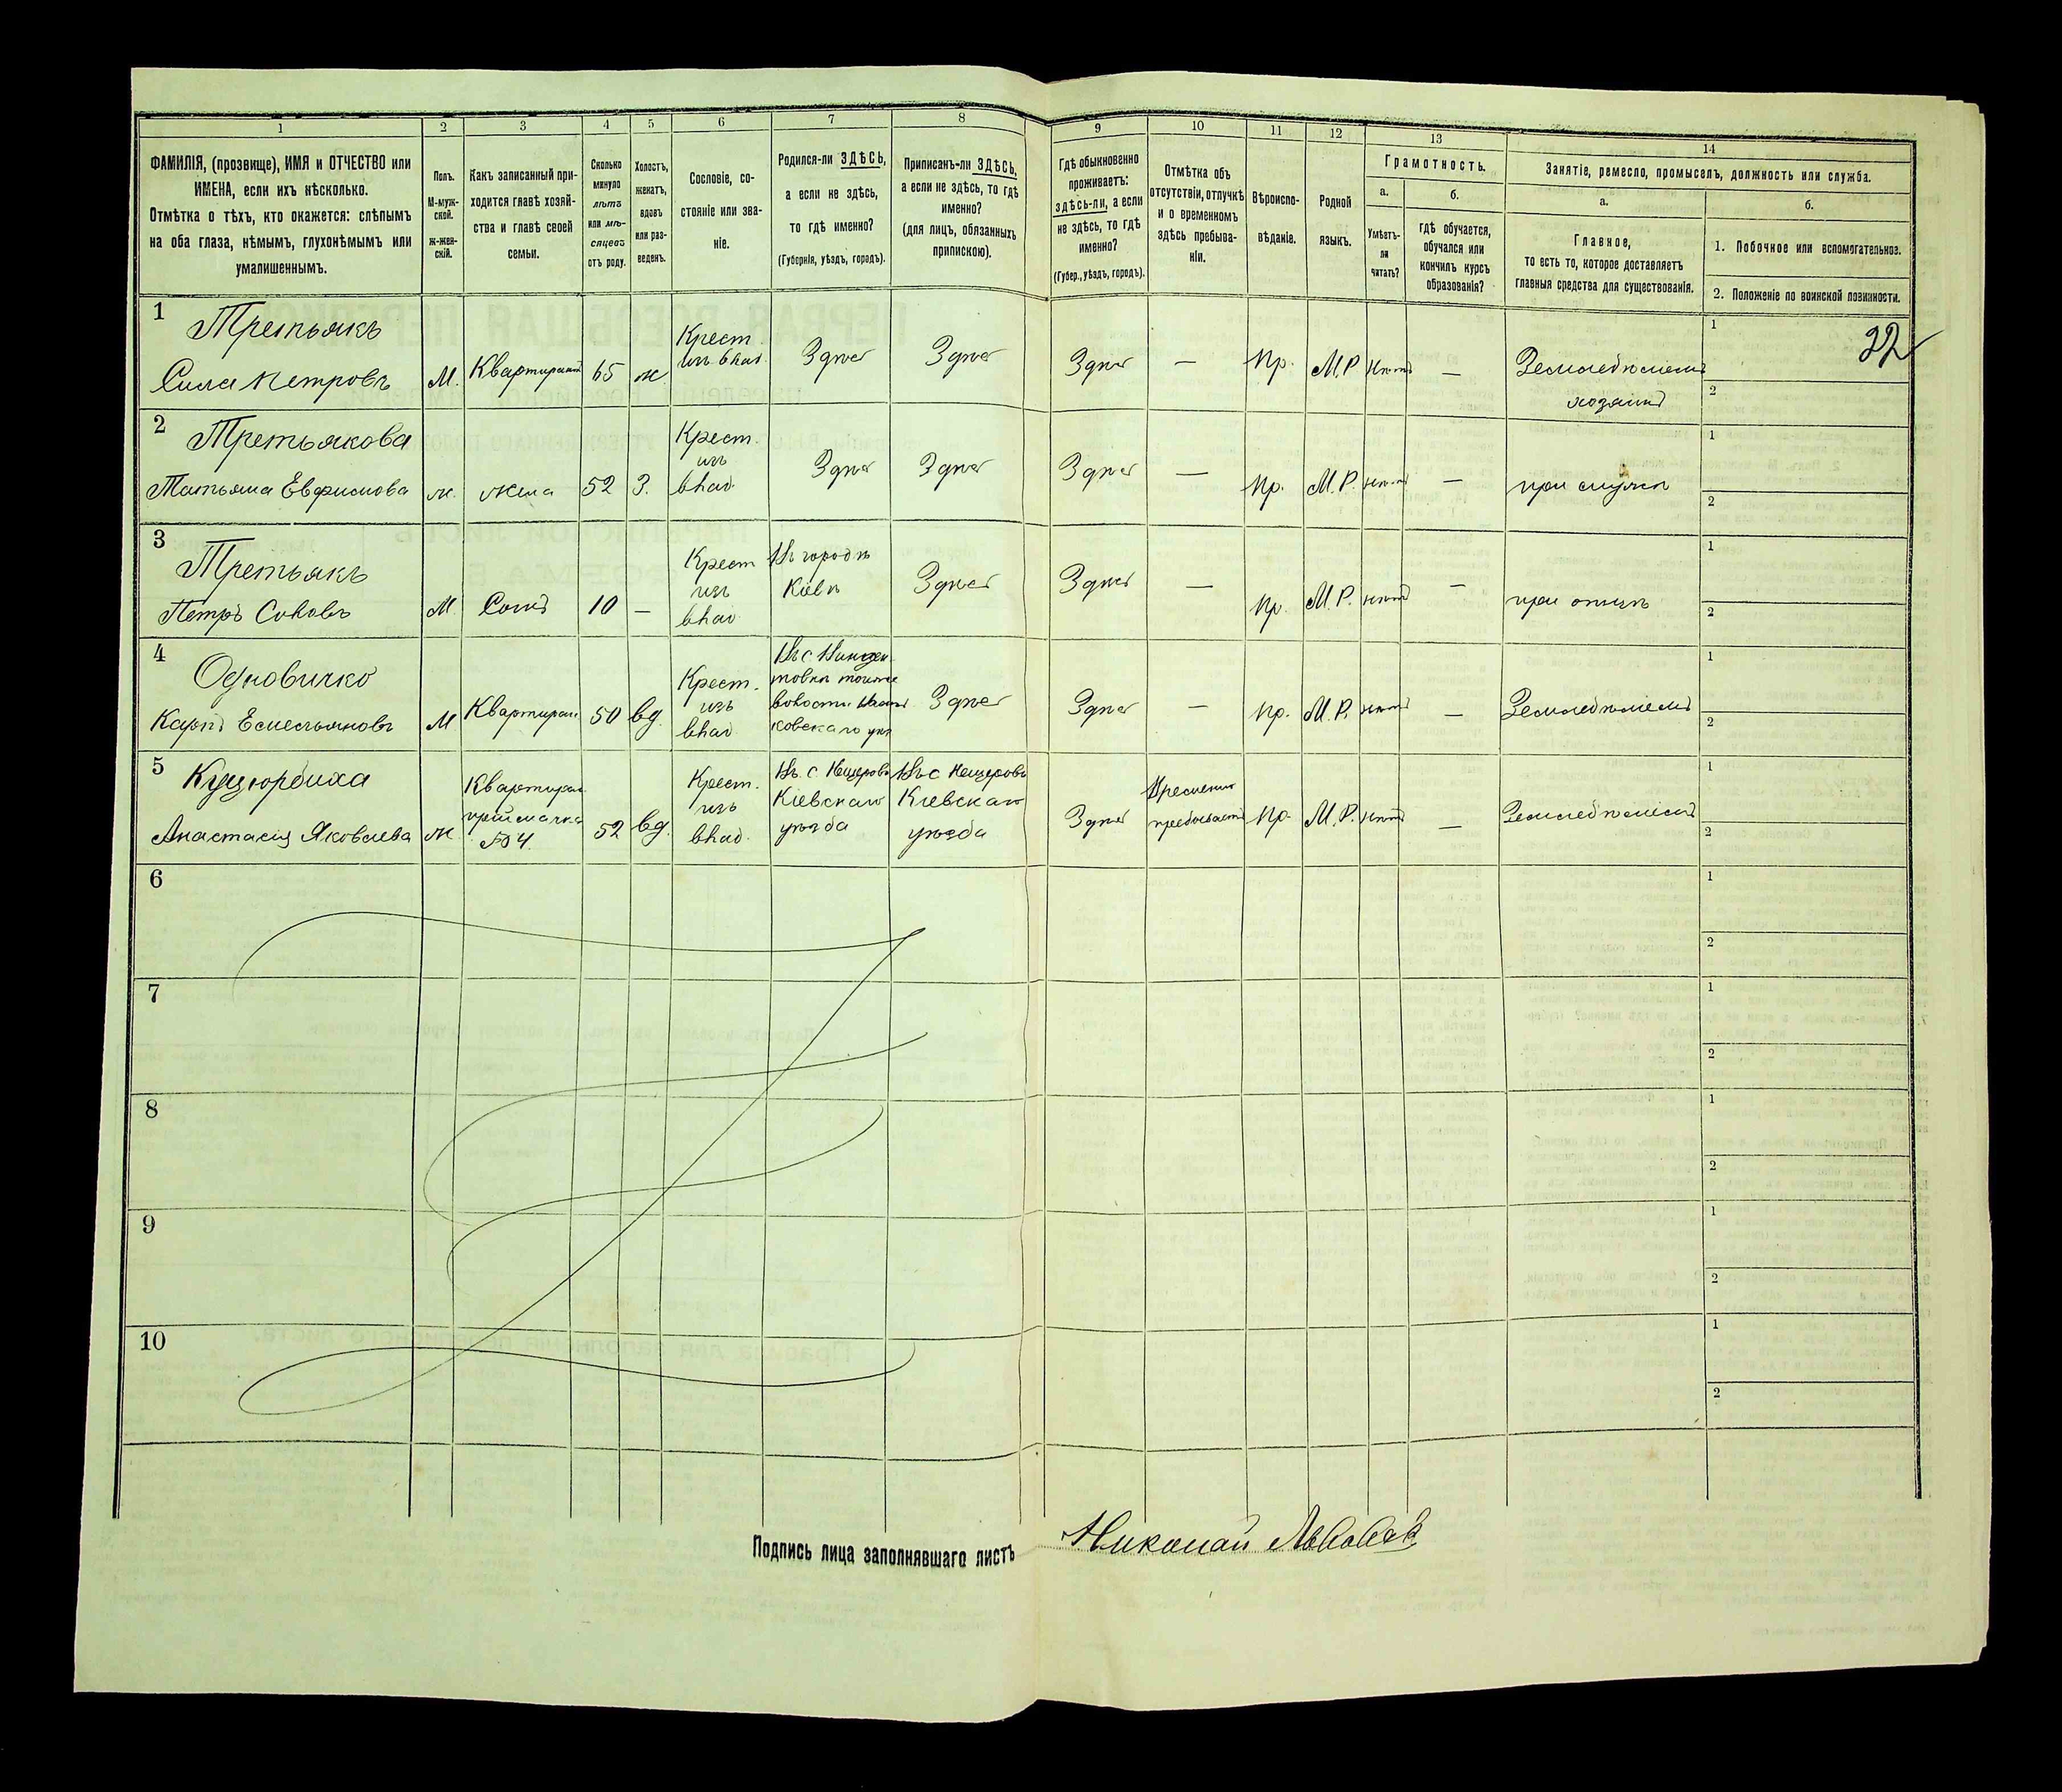 1 2 3 4 5 6 7 8 9 10 11 12 13 14
ФАМИЛІЯ, (прозвище), ИМЯ и ОТЧЕСТВО или
ИМЕНА, если ихъ нѣсколько.
Отмѣтка о тѣхъ, кто окажется: слѣпымъ
на оба глаза, нѣмымъ, глухонѣмымъ или
умалишеннымъ.
Полъ.
М-муж-
ской.
ж-жен-
скій.
Какъ записанный при-
ходится главѣ хозяй-
ства и главѣ своей
семьи.
Сколько
минуло
лѣтъ
или мѣ-
сяцевъ
отъ роду.
Холостъ,
женатъ,
вдовъ
или раз-
веденъ.
Сословіе, со-
стояніе или зва-
ніе.
Родился-ли ЗДѢСЬ,
а если не здѣсь,
то гдѣ именно?
(Губернія, уѣздъ, городъ).
Приписанъ-ли ЗДѢСЬ,
а если не здѣсь, то гдѣ
именно?
(для лицъ, обязанныхъ
припискою).
Гдѣ обыкновенно
проживаетъ:
здѣсь-ли, а если
не здѣсь, то гдѣ
именно?
(Губер., уѣздъ, городъ).
Отмѣтка объ
отсутствіи, отлучкѣ
и о временномъ
здѣсь пребыва-
ніи.
Вѣроиспо-
вѣданіе.
Родной
языкъ.
Грамотность.
а.
Умѣетъ-
ли
читать?
б.
гдѣ обучается,
обучался или
кончилъ курсъ
образованія?
Занятіе, ремесло, промыселъ, должность или служба.
а.
Главное,
то есть то, которое доставляетъ
главныя средства для существованія.
б.
1. Побочное или вспомогательное.
2. Положеніе по воинской повинности.
1 Третьякъ
Сила Петровъ
М.
65
ж
Крест.
изъ влад.
Здѣсь
Здѣсь
Здѣсь
—
Пр.
М.Р.
нѣтъ
—
Земледѣлецъ
хозяинъ
1
2
22
2 Третьякова
Татьяна Евфимова
ж.
жена
52
З.
Крест.
изъ
влад.
Здѣсь
Здѣсь
Здѣсь
—
Пр.
М.Р.
нѣтъ
—
при мужѣ
1
2
3 Третьякъ
Петръ Силовъ
М.
Сынъ
10
—
Крест
изъ
влад
Въ городѣ
Кіевѣ
Здѣсь
Здѣсь
—
Пр.
М.Р.
нѣтъ
—
при отцѣ
1
2
4
Карпъ Емельяновъ
М
50
вд.
Крест.
изъ
влад
Здѣсь
Здѣсь
—
Пр.
М.Р.
нѣтъ
—
Земледѣлецъ
1
2
5
Анастасія Яковлева
ж.
№ 4
52
вд.
Крест.
изъ
влад.
Въ с
Кіевскаго
уѣзда
Въ с
Кіевскаго
уѣзда
Здѣсь
Временно
пребываетъ
Пр.
М.Р.
нѣтъ
—
Земледѣлецъ
1
2
6
1
2
7
1
2
8
1
2
9
1
2
10
1
2
Подпись лица заполнявшаго листъ
Николай